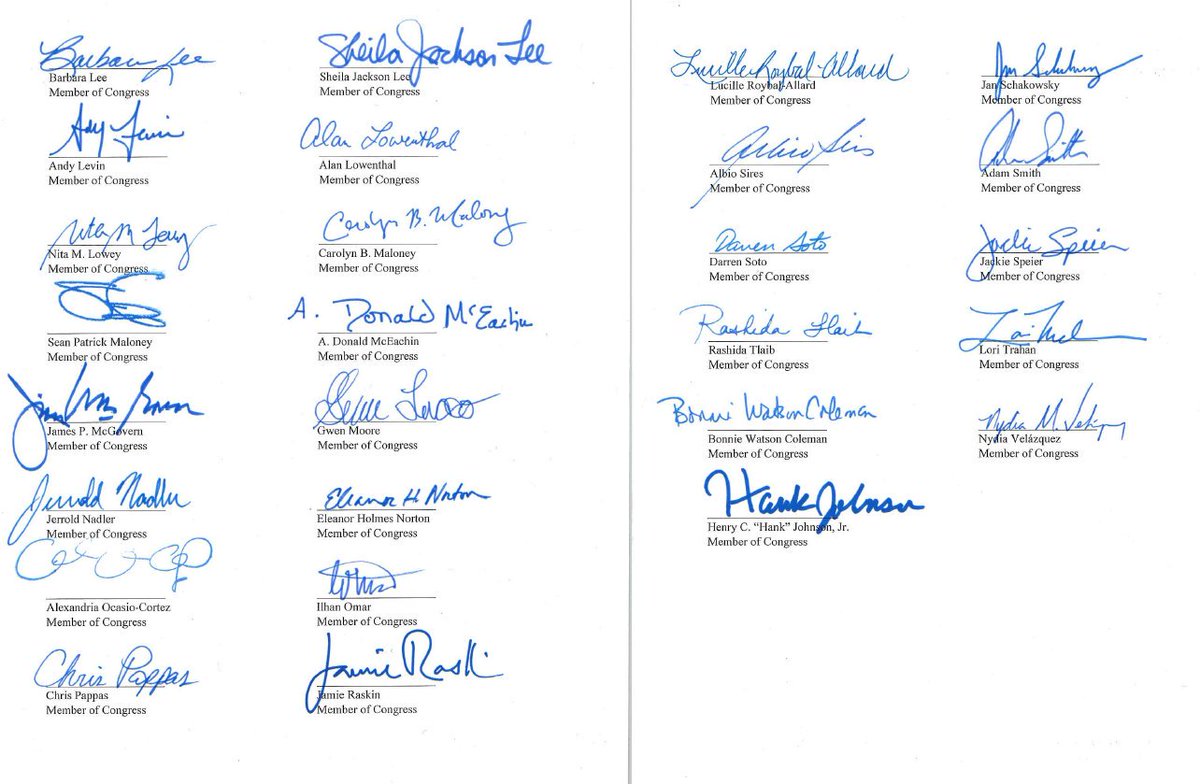 Barbara Lee
Barbara Lee
Member of Congress
Sheila Jackson Lee
Sheila Jackson Lee
Member of Congress
Andy Levin
Andy Levin
Member of Congress
Alan Lowenthal
Alan Lowenthal
Member of Congress
Nita M. Lowey
Nita M. Lowey
Member of Congress
Carolyn B. Maloney
Carolyn B. Maloney
Member of Congress
Sean Patrick Maloney
Member of Congress
A. Donald McEachin
A. Donald McEachin
Member of Congress
James P. McGovern
Member of Congress
Gwen Moore
Member of Congress
Jerrold Nadler
Jerrold Nadler
Member of Congress
Eleanor H Norton
Eleanor Holmes Norton
Member of Congress
Alexandria Ocasio-Cortez
Member of Congress
Ilhan Omar
Member of Congress
Chris Pappas
Chris Pappas
Member of Congress
Jamie Raskin
Jamie Raskin
Member of Congress
Lucille Roybal-Allard
Lucille Roybal-Allard
Member of Congress
Jan Schakowsky
Member of Congress
Albio Sires
Albio Sires
Member of Congress
Adam Smith
Adam Smith
Member of Congress
Darren Soto
Darren Soto
Member of Congress
Jackie Speier
Jackie Speier
Member of Congress
Rashida Tlaib
Rashida Tlaib
Member of Congress
Lori Trahan
Member of Congress
Bonnie Watson Coleman
Bonnie Watson Coleman
Member of Congress
Nydia M. Velázquez
Nydia Velázquez
Member of Congress
Hank Johnson
Henry C. “Hank” Johnson, Jr.
Member of Congress